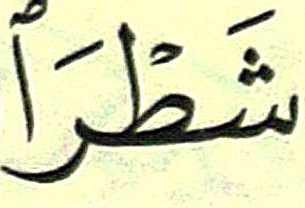 شَطْرَاْ